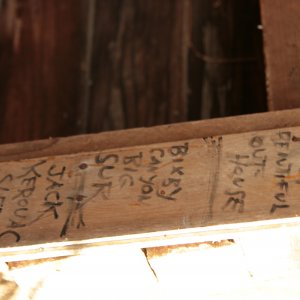 BEAUTIFUL
OUT
HOUSE
BIXBY
CANYON
BIG
SUR
JACK
KEROUAC